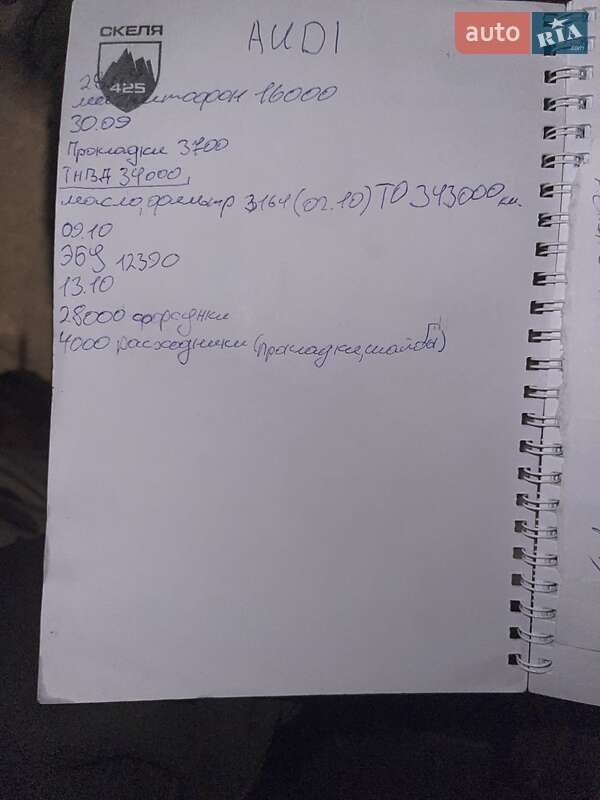 auto RIA
.com
СКЕЛЯ
425
AUDI
16000
30.09
Прокладки 3700
ТНВД 34000
масло, фильтр 3164 (02.10) ТО 343000 км.
09.10
ЭБУ 12390
13.10
28000 форсунки
4000 расходники (прокладки, шайбы)